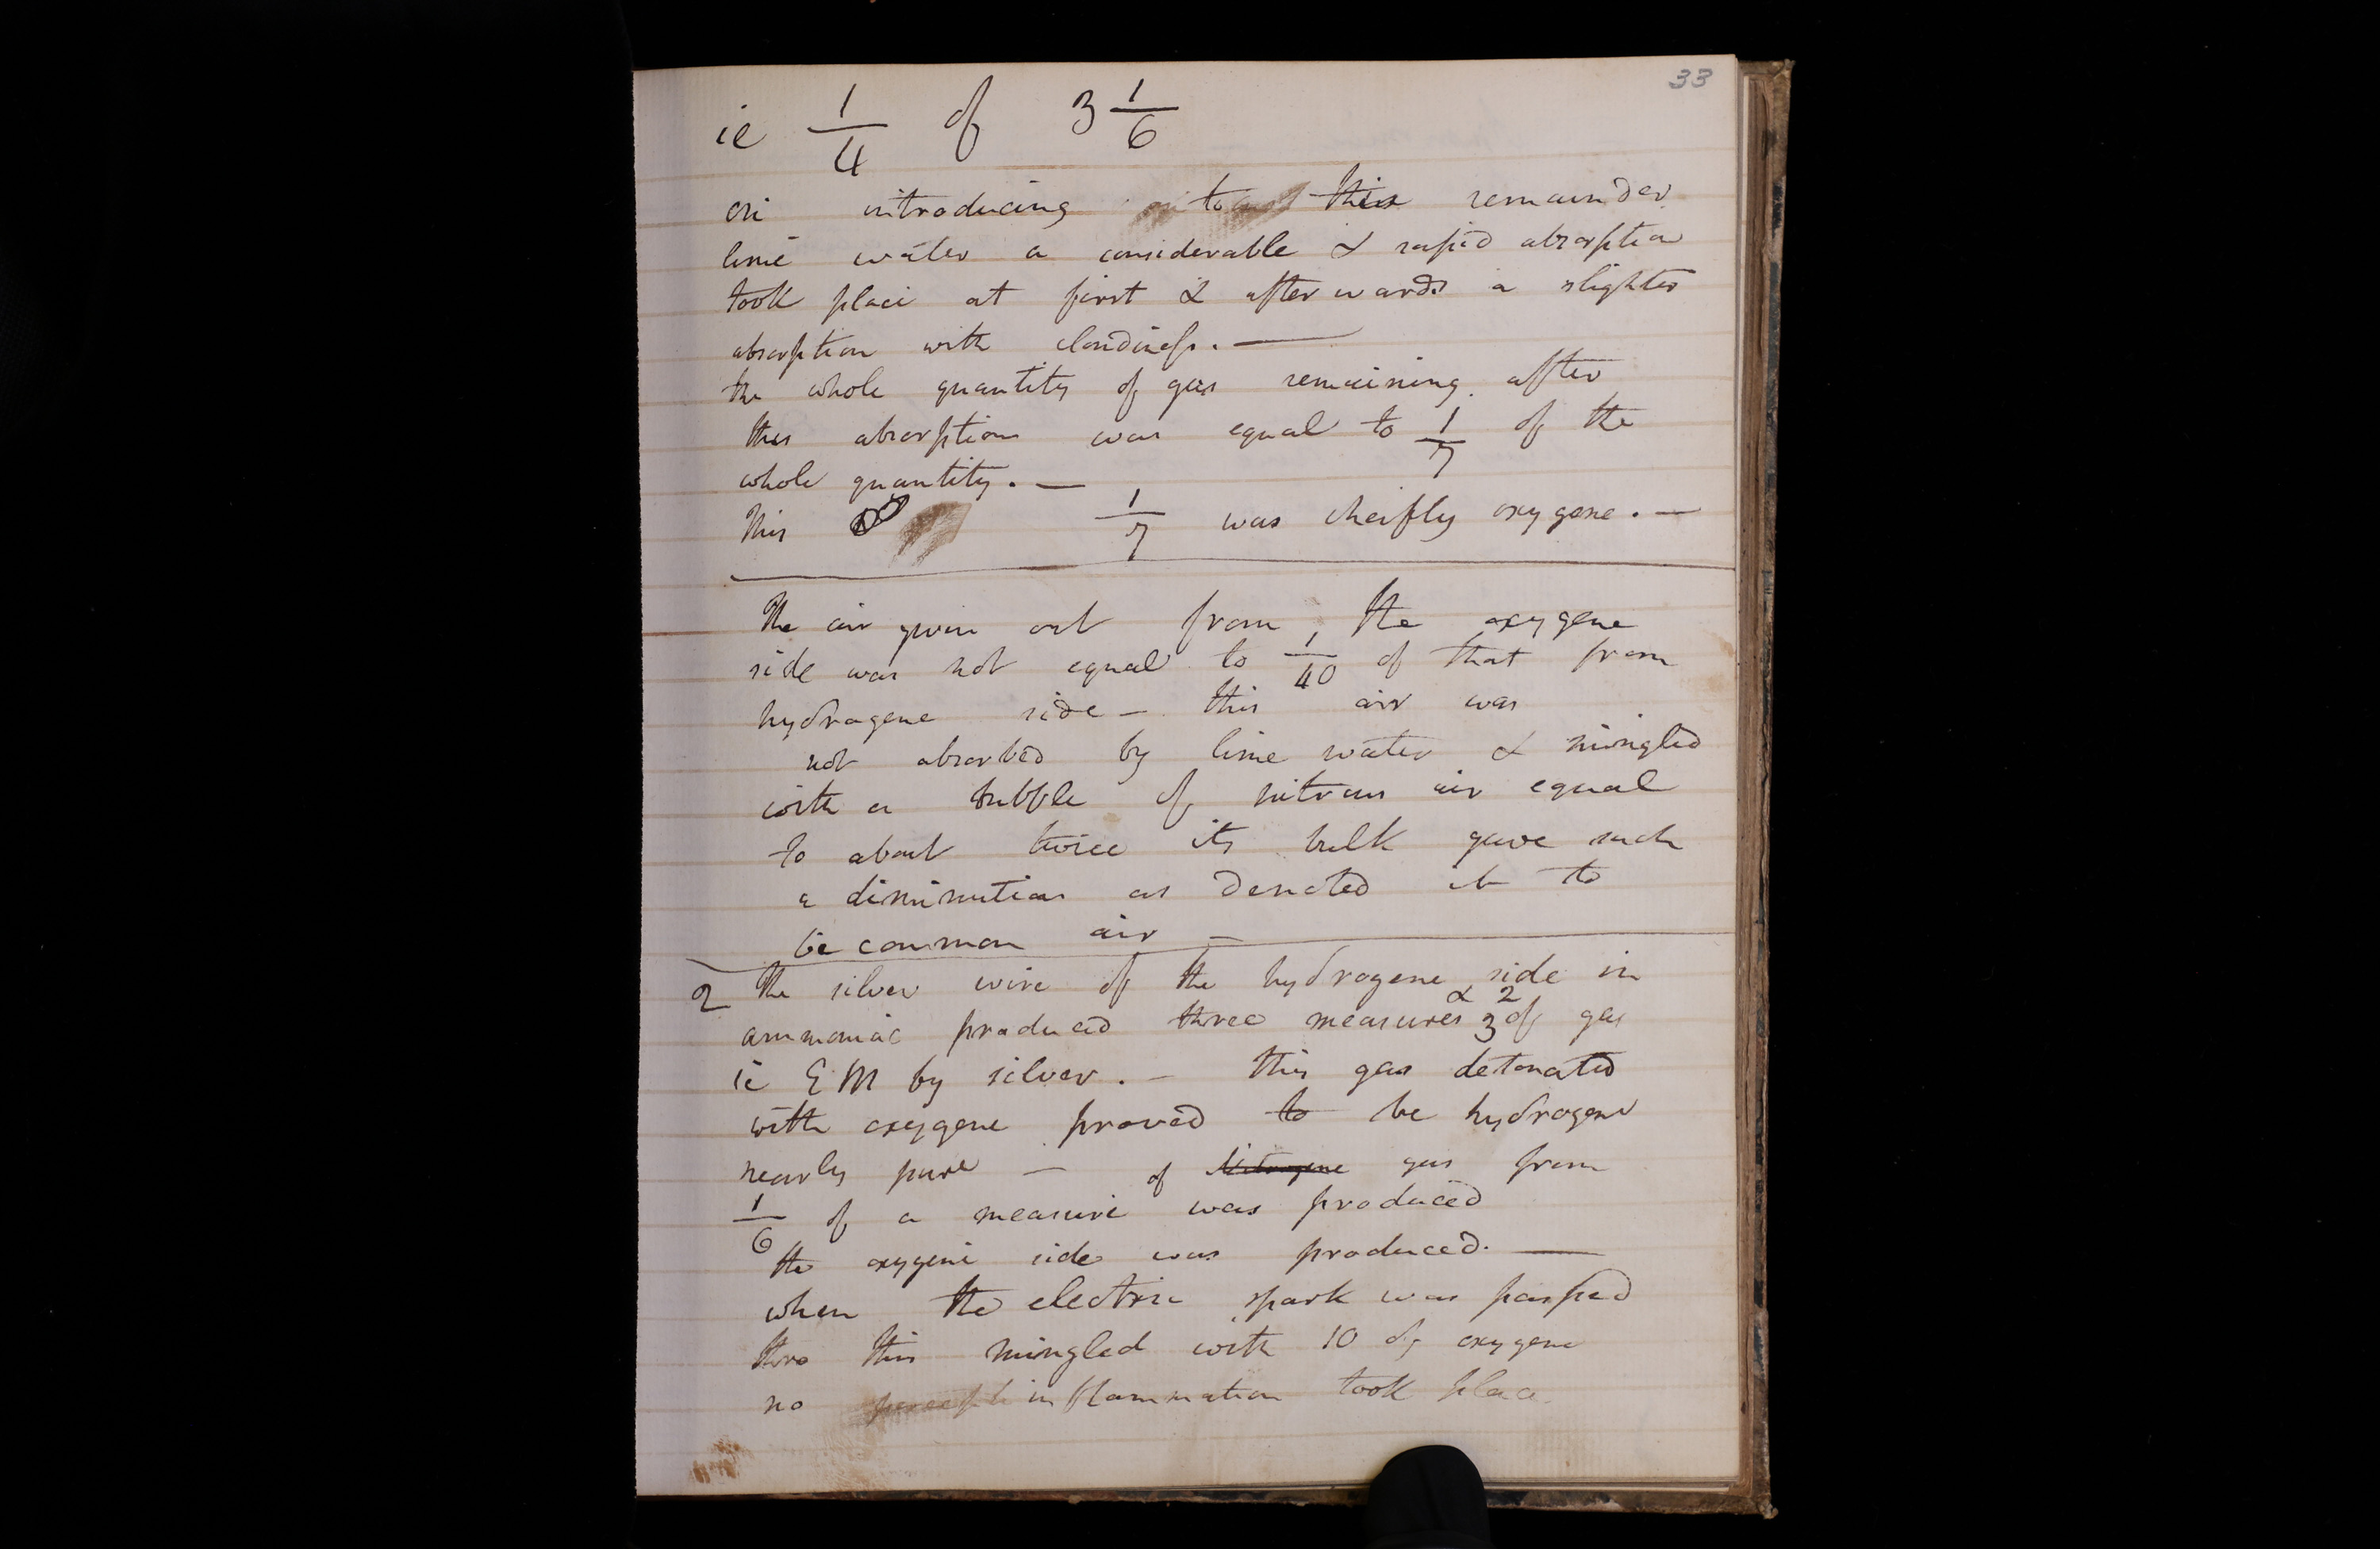 33
ie 1/4 of 3 1/6
on introducing into this remainder
lime water a considerable & rapid absorption
took place at first & afterwards a slighter
absorption with cloudiness. —
the whole quantity of gas remaining after
this absorption was equal to 1/7 of the
whole quantity. —
This 1/7 was cheifly oxygene. —
The air given out from the oxygene
side was not equal to 1/40 of that from
hydrogene side — this air was
not absorbed by lime water & mingled
with a bubble of nitrous air equal
to about twice its bulk gave such
a diminution as denoted it to
be common air —
2 The silver wire of the hydrogene side in
ammoniac produced three measures & 2/3 of gas
ie EM by silver. — this gas detonated
with oxygene proved to be hydrogene
nearly pure — of Nitrogene gas from
1/6 of a measure was produced
the oxygene side was produced. —
when the electric spark was passed
thro this mingled with 10 of oxygene
no inflammation took place.